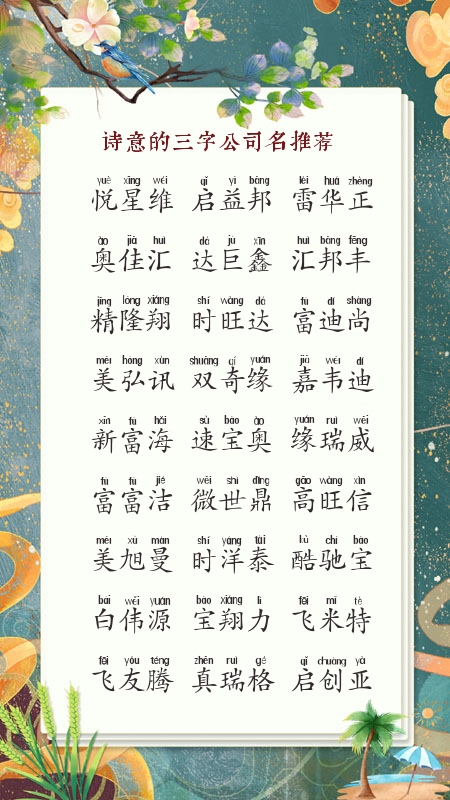 诗意的三字公司名推荐
yuè xīng wéi qǐ yì bāng léi huá zhèng
悦星维 启益邦 雷华正
ào jiā huì dá jù xīn huì bāng fēng
奥佳汇 达巨鑫 汇邦丰
jīng lóng xiáng shí wàng dá fù dí shàng
精隆翔 时旺达 富迪尚
měi hóng xùn shuāng qí yuán jiā wéi dí
美弘讯 双奇缘 嘉韦迪
xīn fù hǎi sù bǎo ào yuán ruì wēi
新富海 速宝奥 缘瑞威
fù fù jié wēi shì dǐng gāo wàng xìn
富富洁 微世鼎 高旺信
měi xù màn shí yáng tài kù chí bǎo
美旭曼 时洋泰 酷驰宝
bái wěi yuán bǎo xiáng lì fēi mǐ tè
白伟源 宝翔力 飞米特
fēi yǒu téng zhēn ruì gé qǐ chuàng yà
飞友腾 真瑞格 启创亚